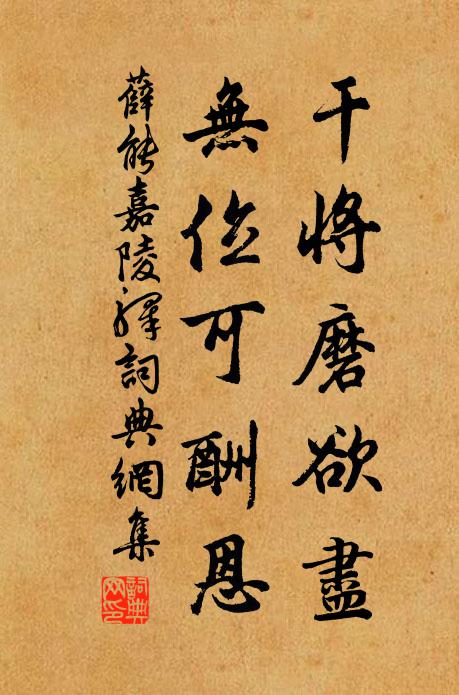 干將磨欲盡
無位可酬恩
薛能嘉陵驛詞典網集
詞典網印